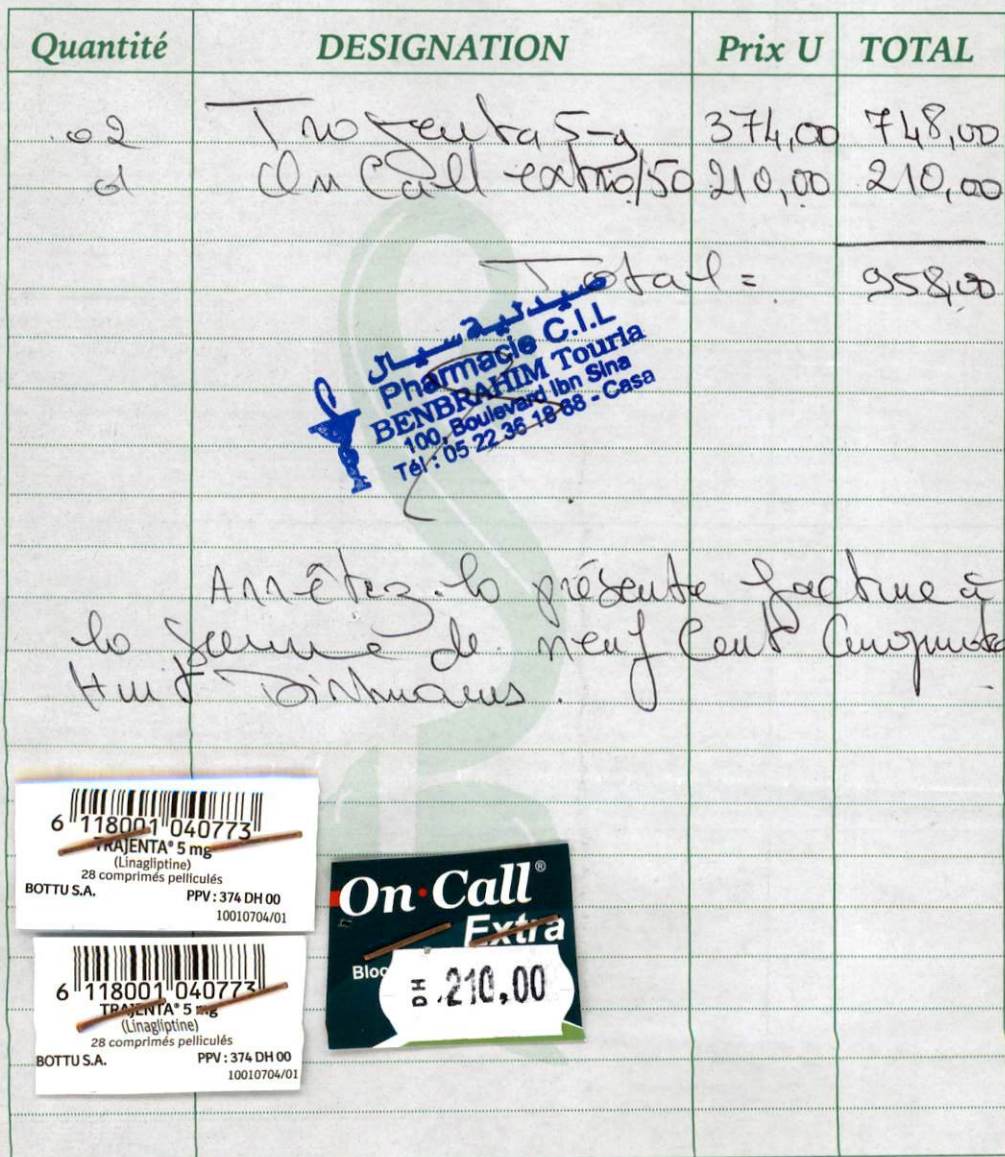 Quantité DESIGNATION Prix U TOTAL
02 Trajenta 5mg 374,00 748,00
01 On Call extra/50 210,00 210,00
Total = 958,00
صيدلية سيال
Pharmacie C.I.L
BENBRAHIM Touria
100, Boulevard Ibn Sina
Tél : 05 22 36 18 68 - Casa
Arrêtez la présente facture à
la somme de neuf Cent Cinquante
Huit Dirhmams.
6 118001 040773
TRAJENTA® 5 mg
(Linagliptine)
28 comprimés pelliculés
BOTTU S.A. PPV : 374 DH 00
10010704/01
On·Call®
Extra
Bloo
DH 210,00
6 118001 040773
TRAJENTA® 5 mg
(Linagliptine)
28 comprimés pelliculés
BOTTU S.A. PPV : 374 DH 00
10010704/01